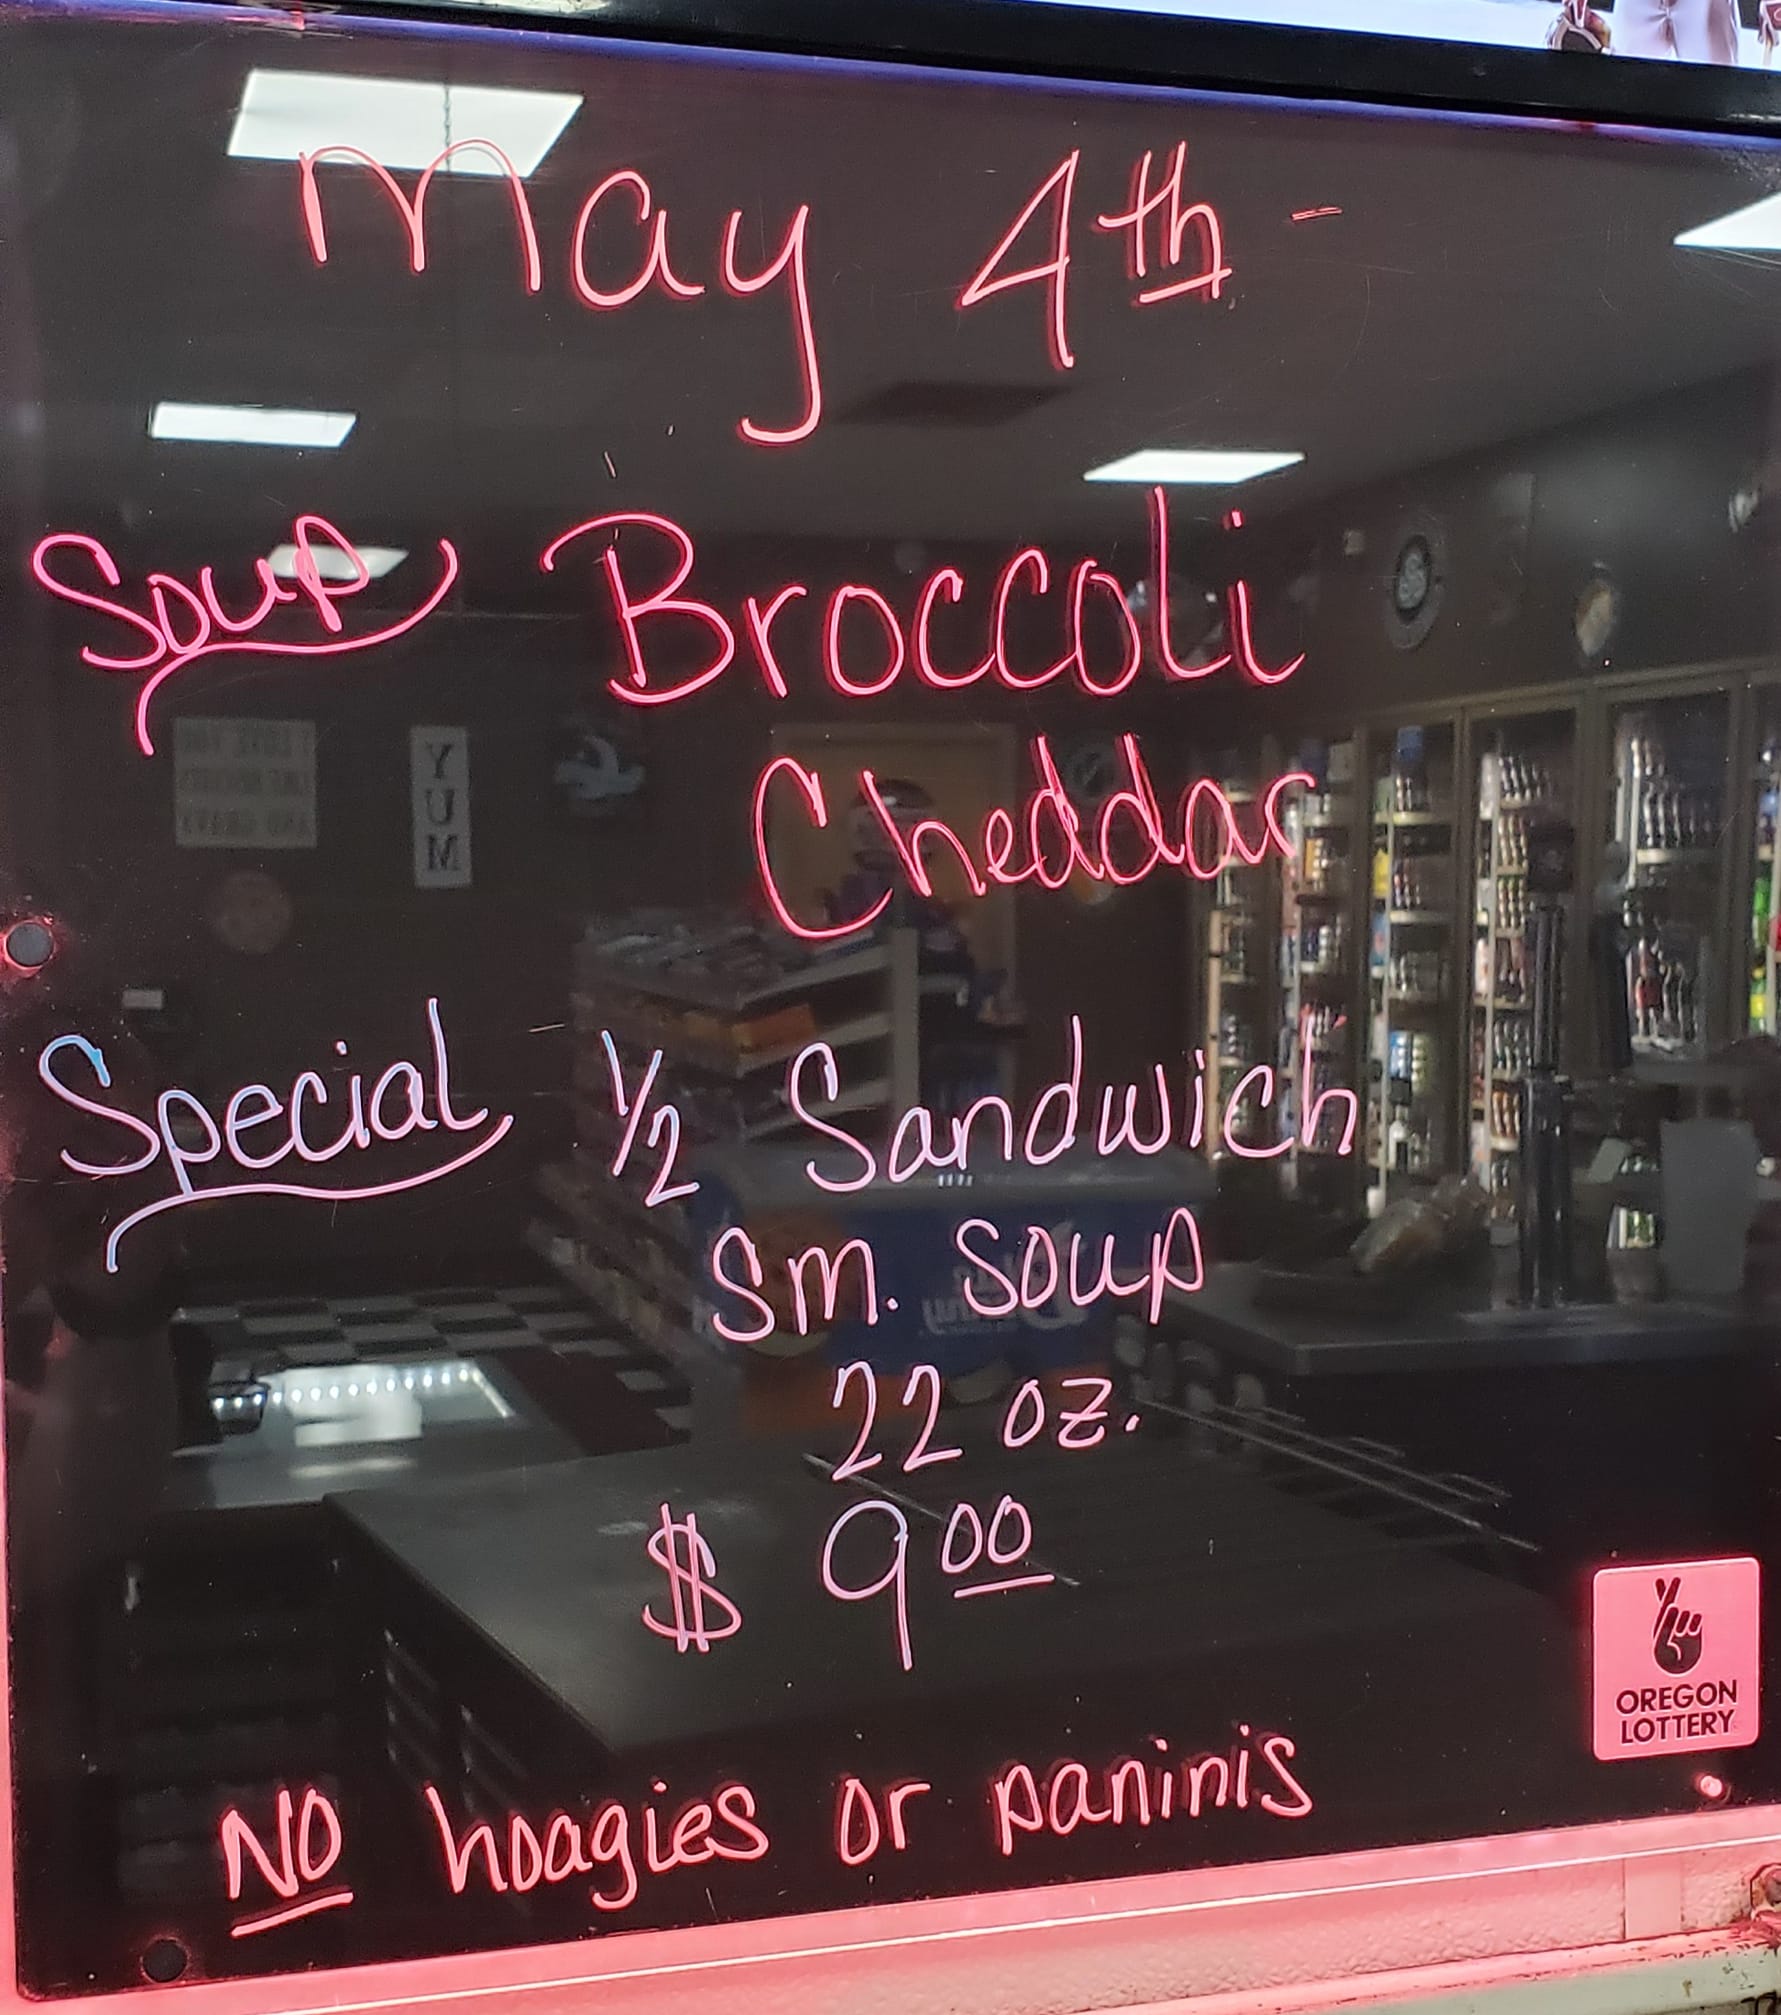 May 4th -
Soup Broccoli
Cheddar
Special 1/2 Sandwich
Sm. Soup
22 oz.
$ 9 00
NO hoagies or paninis
OREGON
LOTTERY
YUM